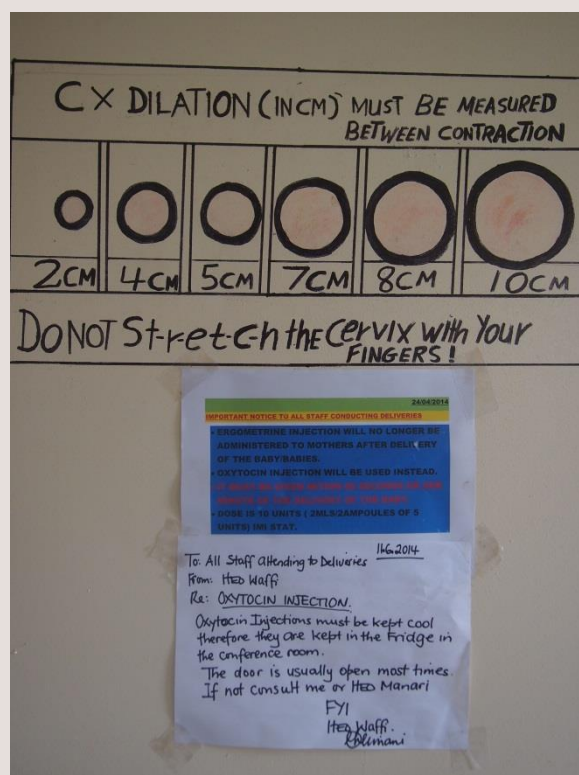 CX DILATION (IN CM) MUST BE MEASURED
BETWEEN CONTRACTION
2CM 4CM 5CM 7CM 8CM 10CM
DO NOT St-r-e-t-c-h the Cervix with Your
FINGERS!
24/04/2014
IMPORTANT NOTICE TO ALL STAFF CONDUCTING DELIVERIES
• ERGOMETRINE INJECTION WILL NO LONGER BE
ADMINISTERED TO MOTHERS AFTER DELIVERY
OF THE BABY/BABIES.
• OXYTOCIN INJECTION WILL BE USED INSTEAD.
• DOSE IS 10 UNITS ( 2MLS/2AMPOULES OF 5
UNITS) IMI STAT.
To: All Staff attending to Deliveries
From: HED Waffi
Re: OXYTOCIN INJECTION.
Oxytocin Injections must be kept cool
therefore they are kept in the Fridge in
the conference room.
The door is usually open most times.
If not consult me or HED Manari
FYI
HED Waffi.